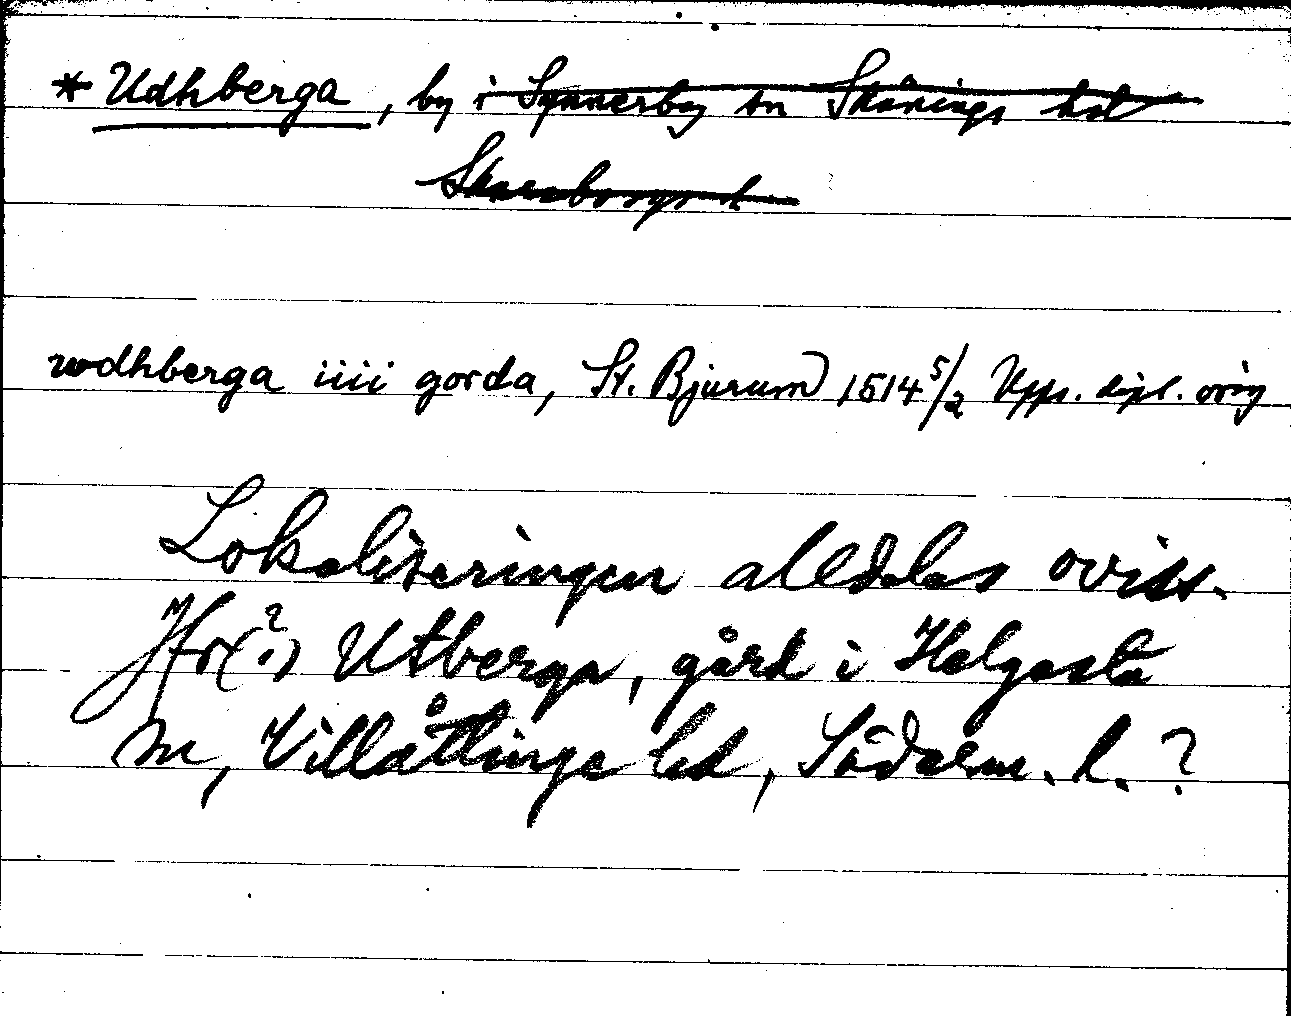 * Udhberga, by i Synnerby sn Skånings hd
Skaraborgs l
wdhberga iiii gorda, St. Bjurum) 1514 5/2 Upps. dipl. orig
Lokaliseringen alldeles oviss.
Jfr(?) Utberga, gård i Helgesta
sn, Villåttinge hd, Söderm. l. ?